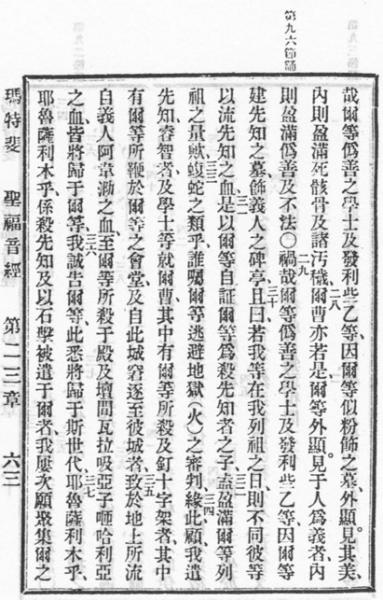 第九六節誦
哉爾等爲善之學士及發利些乙等、因爾等似粉飾之墓、外顯、見其美、
內則盈滿死骸骨及諸汚穢、二八爾曹亦若是、爾等外顯、見于人爲義者、內
則盈滿僞善及不法〇二九禍哉爾等僞善之學士及發利些乙等、因爾等
建先知之墓、飾義人之碑亭、三十且曰、若我等在我列祖之日、則不同彼等
以流先知之血、三一是以爾等自証爾等爲殺先知者之子、三二盍盈滿爾等列
祖之量歟、三三蝮蛇之類乎、誰囑爾等逃避地獄(火)之審判、三四緣此顧我遣
先知、睿智者、及學士等就爾曹、其中有爾等所殺及釘十字架者、其中
有爾等所鞭於爾等之會堂、及自此城窘逐至彼城者、三五致於地上所流
自義人阿韋泐之血、至爾等所殺于殿及壇間瓦拉吸亞子咂哈利亞
之血、皆將歸于爾等、三六我誠告爾等、此悉將歸于斯世代、三七耶魯薩利木乎、
耶魯薩利木乎、係殺先知及以石擊被遣于爾者、我屢次願聚集爾之
瑪特斐 聖福音經 第二三章 六三